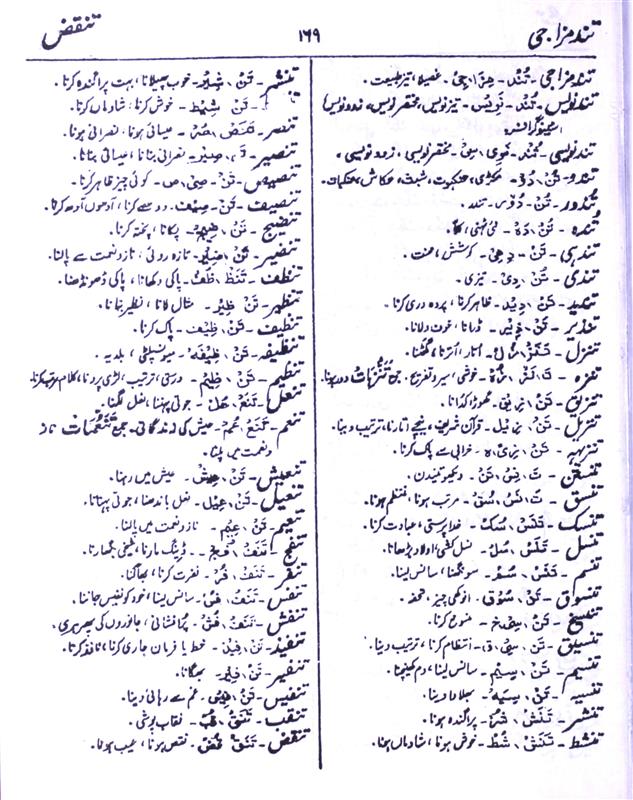 تند مزاجی
۱۶۹
تنقض
تند مزاجی - تُند، مِزا، جی - غصیلا، تیز طبیعت۔
تند نویس - تُند - نَوِیس - تیز نویس، مختصر نویس، زود نویس
تند نویسی - تُند، نَوِی، سی - مختصر نویسی، زود نویسی۔
تندو - تَن، دُو - مکڑی، عنکبوت،
تندور - تَن - دُور - تند
تندہ - تُن، دَہ -
تندہی - تَن - دِہی - کوشش، محنت۔
تندی - تُن، دی - تیزی۔
تندید - تَن، دِید - ظاہر کرنا، پردہ دری کرنا۔
تنذیر - تَن، ذِیر - ڈرانا، خوف دلانا۔
تنزل - تَنَز، زُل - اتار، اترنا، گھٹنا۔
تنزہ - تَ، نَز، زُہ - خوشی، سیر و تفریح - جمع تنزُّہات دور ہونا۔
تنزیق - تَن، زِیق - گھوڑا کدانا۔
تنزیل - تَن، زِیل - قرآن شریف، نیچے اتارنا، ترتیب دینا۔
تنزیہہ - تَن، زی، ہ - خرابی سے پاک کرنا۔
تنسق - تَ، نَس، سُق - مرتب ہونا، منتظم ہونا۔
تنسک - تَنَس، سُک - خدا پرستی، عبادت کرنا۔
تنسل - تَنَس، سُل - نسل کشی، اولاد بڑھانا۔
تنسم - تَنَس، سُم - سونگھنا، سانس لینا۔
تنسواق - تَن، سُوَاق - انوکھی چیز، تحفہ۔
تنسیخ - تَن، سِیخ - منسوخ کرنا۔
تنسیق - تَن، سی، ق - انتظام کرنا، ترتیب دینا۔
تنسیم - تَن، سِیم - سانس لینا، دم کھینچنا۔
تنسیہ - تَن، سِیَہ - بھلا دینا۔
تنشر - تَنَش، شُر - پراگندہ ہونا۔
تنشط - تَنَش، شُط - خوش ہونا، شادماں ہونا۔
تنشیر - تَن، شِیر - خوب پھیلانا، بہت پراگندہ کرنا۔
تَن، شِیط - خوش کرنا، شاداں کرنا۔
تنصر - تَنَص، صُر - عیسائی ہونا، نصرانی ہونا۔
تنصیر - تَن، صِیر - نصرانی بنانا، عیسائی بنانا۔
تنصیص - تَن - صی، ص - کوئی چیز ظاہر کرنا۔
تنصیف - تَن - صِیف - دو حصے کرنا، آدھوں آدھ کرنا۔
تنضیج - تَن، ضِیج - پکانا، پختہ کرنا۔
تنضیر - تَن، ضِیر - تازہ روئی، ناز و نعمت سے پالنا۔
تنظف - تَنَظ، ظُف - پاکی دکھانا، پاکی ڈھونڈھنا۔
تنظیر - تَن، ظِیر - مثال لانا، نظیر بنانا۔
تنظیف - تَن، ظِیف - پاک کرنا۔
تنظیفہ - تَن، ظِیفَہ - میونسپلٹی، بلدیہ۔
تنظیم - تَن، ظِیم - درستی، ترتیب، لڑی پرونا، کلام مرتب کرنا۔
تنعل - تَنَع، عُل - جوتی پہننا، نعل لگنا۔
تنعم - تَنَع، عُم - عیش کی زندگانی - جمع تنعُّمات ناز
و نعمت میں پلنا۔
تنعیش - تَن، عِیش - عیش میں رہنا۔
تنعیل - تَن، عِیل - نعل باندھنا، جوتی پہنانا۔
تنعیم - تَن، عِیم - ناز و نعمت میں پالنا۔
تنفج - تَنَف، فُج - ڈینگ مارنا، شیخی بگھارنا۔
تنفر - تَنَف، فُر - نفرت کرنا، بھاگنا۔
تنفس - تَنَف، فُس - سانس لینا، خود کو نفیس جاننا۔
تنفش - تَنَف، فُش - پر افشانی، جانوروں کی پھریری۔
تنفیذ - تَن، فِیذ - خط یا فرمان جاری کرنا، نافذ کرنا۔
تنفیر - تَن، فِیر - بھگانا۔
تنفیس - تَن، فِیس - غم سے رہائی دینا۔
تنقب - تَنَق، قُب - نقاب پوشی۔
تنقض - تَنَق، قُض - نقص ہونا، عیب ہونا۔